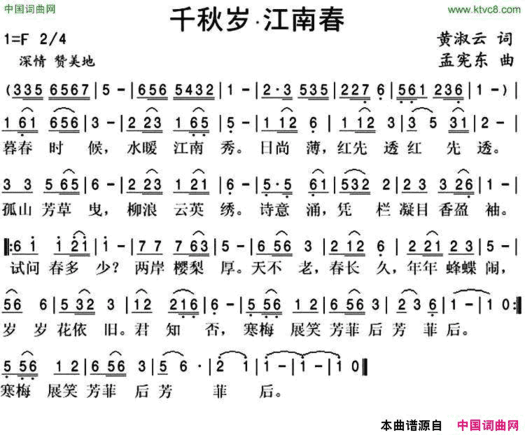 中国词曲网
www.ktvc8.com
千秋岁·江南春
1=F 2/4
黄淑云 词
深情 赞美地
孟宪东 曲
(335 6567 | 5 - | 656 5432 | 1 - | 2·3 535 | 2276 | 561 236 | 1 -) |
1 61 656 | 3 - | 2 23 1 65 | 1 - | 1 12 6 | 1 12 3 | 3 5 31 | 2 - |
暮春 时 候，水暖 江南 秀。日尚 薄,红先 透 红 先 透。
3 3 5 65 | 3 - | 2 23 1 21 | 1 - | 5·5 61 | 532 2 | 23 3 26 | 1 - |
孤山 芳草 曳，柳浪 云英 绣。诗意 涌,凭 栏 凝目 香盈 袖。
|: 6 1 1 21 | 5 - | 7 7 7 63 | 5 - | 5 56 3 | 2 12 6 | 2 21 23 | 5 - |
试问 春多 少？两岸 樱梨 厚。天不 老,春长 久,年年 蜂蝶 闹,
56 6 | 5 32 3 | 12 216 | 6 - | 5 56 1 2 | 6 56 3 | 2 3 6 | 1 - | 1 0 :|
岁 岁 花依 旧。君 知 否，寒梅 展笑 芳菲 后 芳 菲 后。
5 56 1 2 | 6 56 3 | 5 6· | 2 1 | 1 - | 1 - | 1 0 ‖
寒梅 展笑 芳菲 后 芳 菲 后。
本曲谱源自 中国词曲网